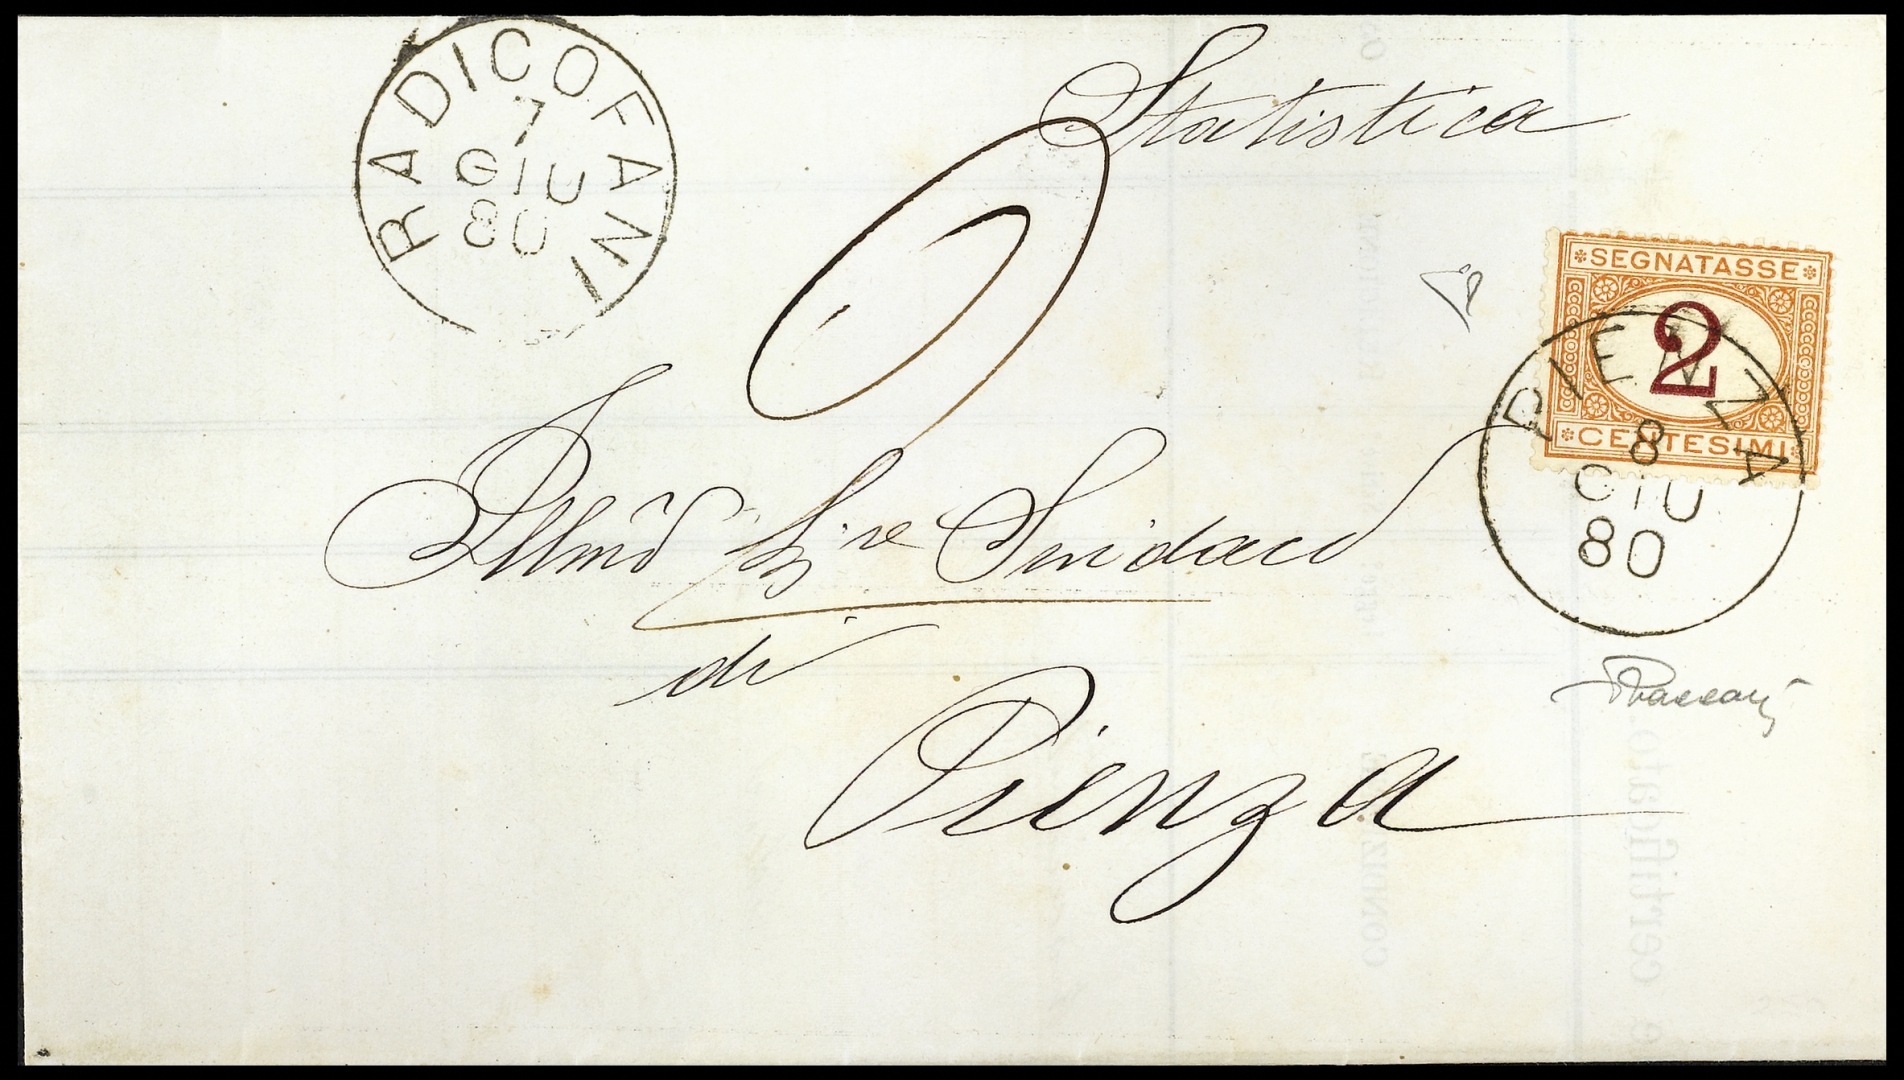 RADICOFANI
7
GIU
80
Statistica
SEGNATASSE
2
CENTESIMI
PIENZA
8
GIU
80
Illmo Sig.re Sindaco
di
Pienza
certificato